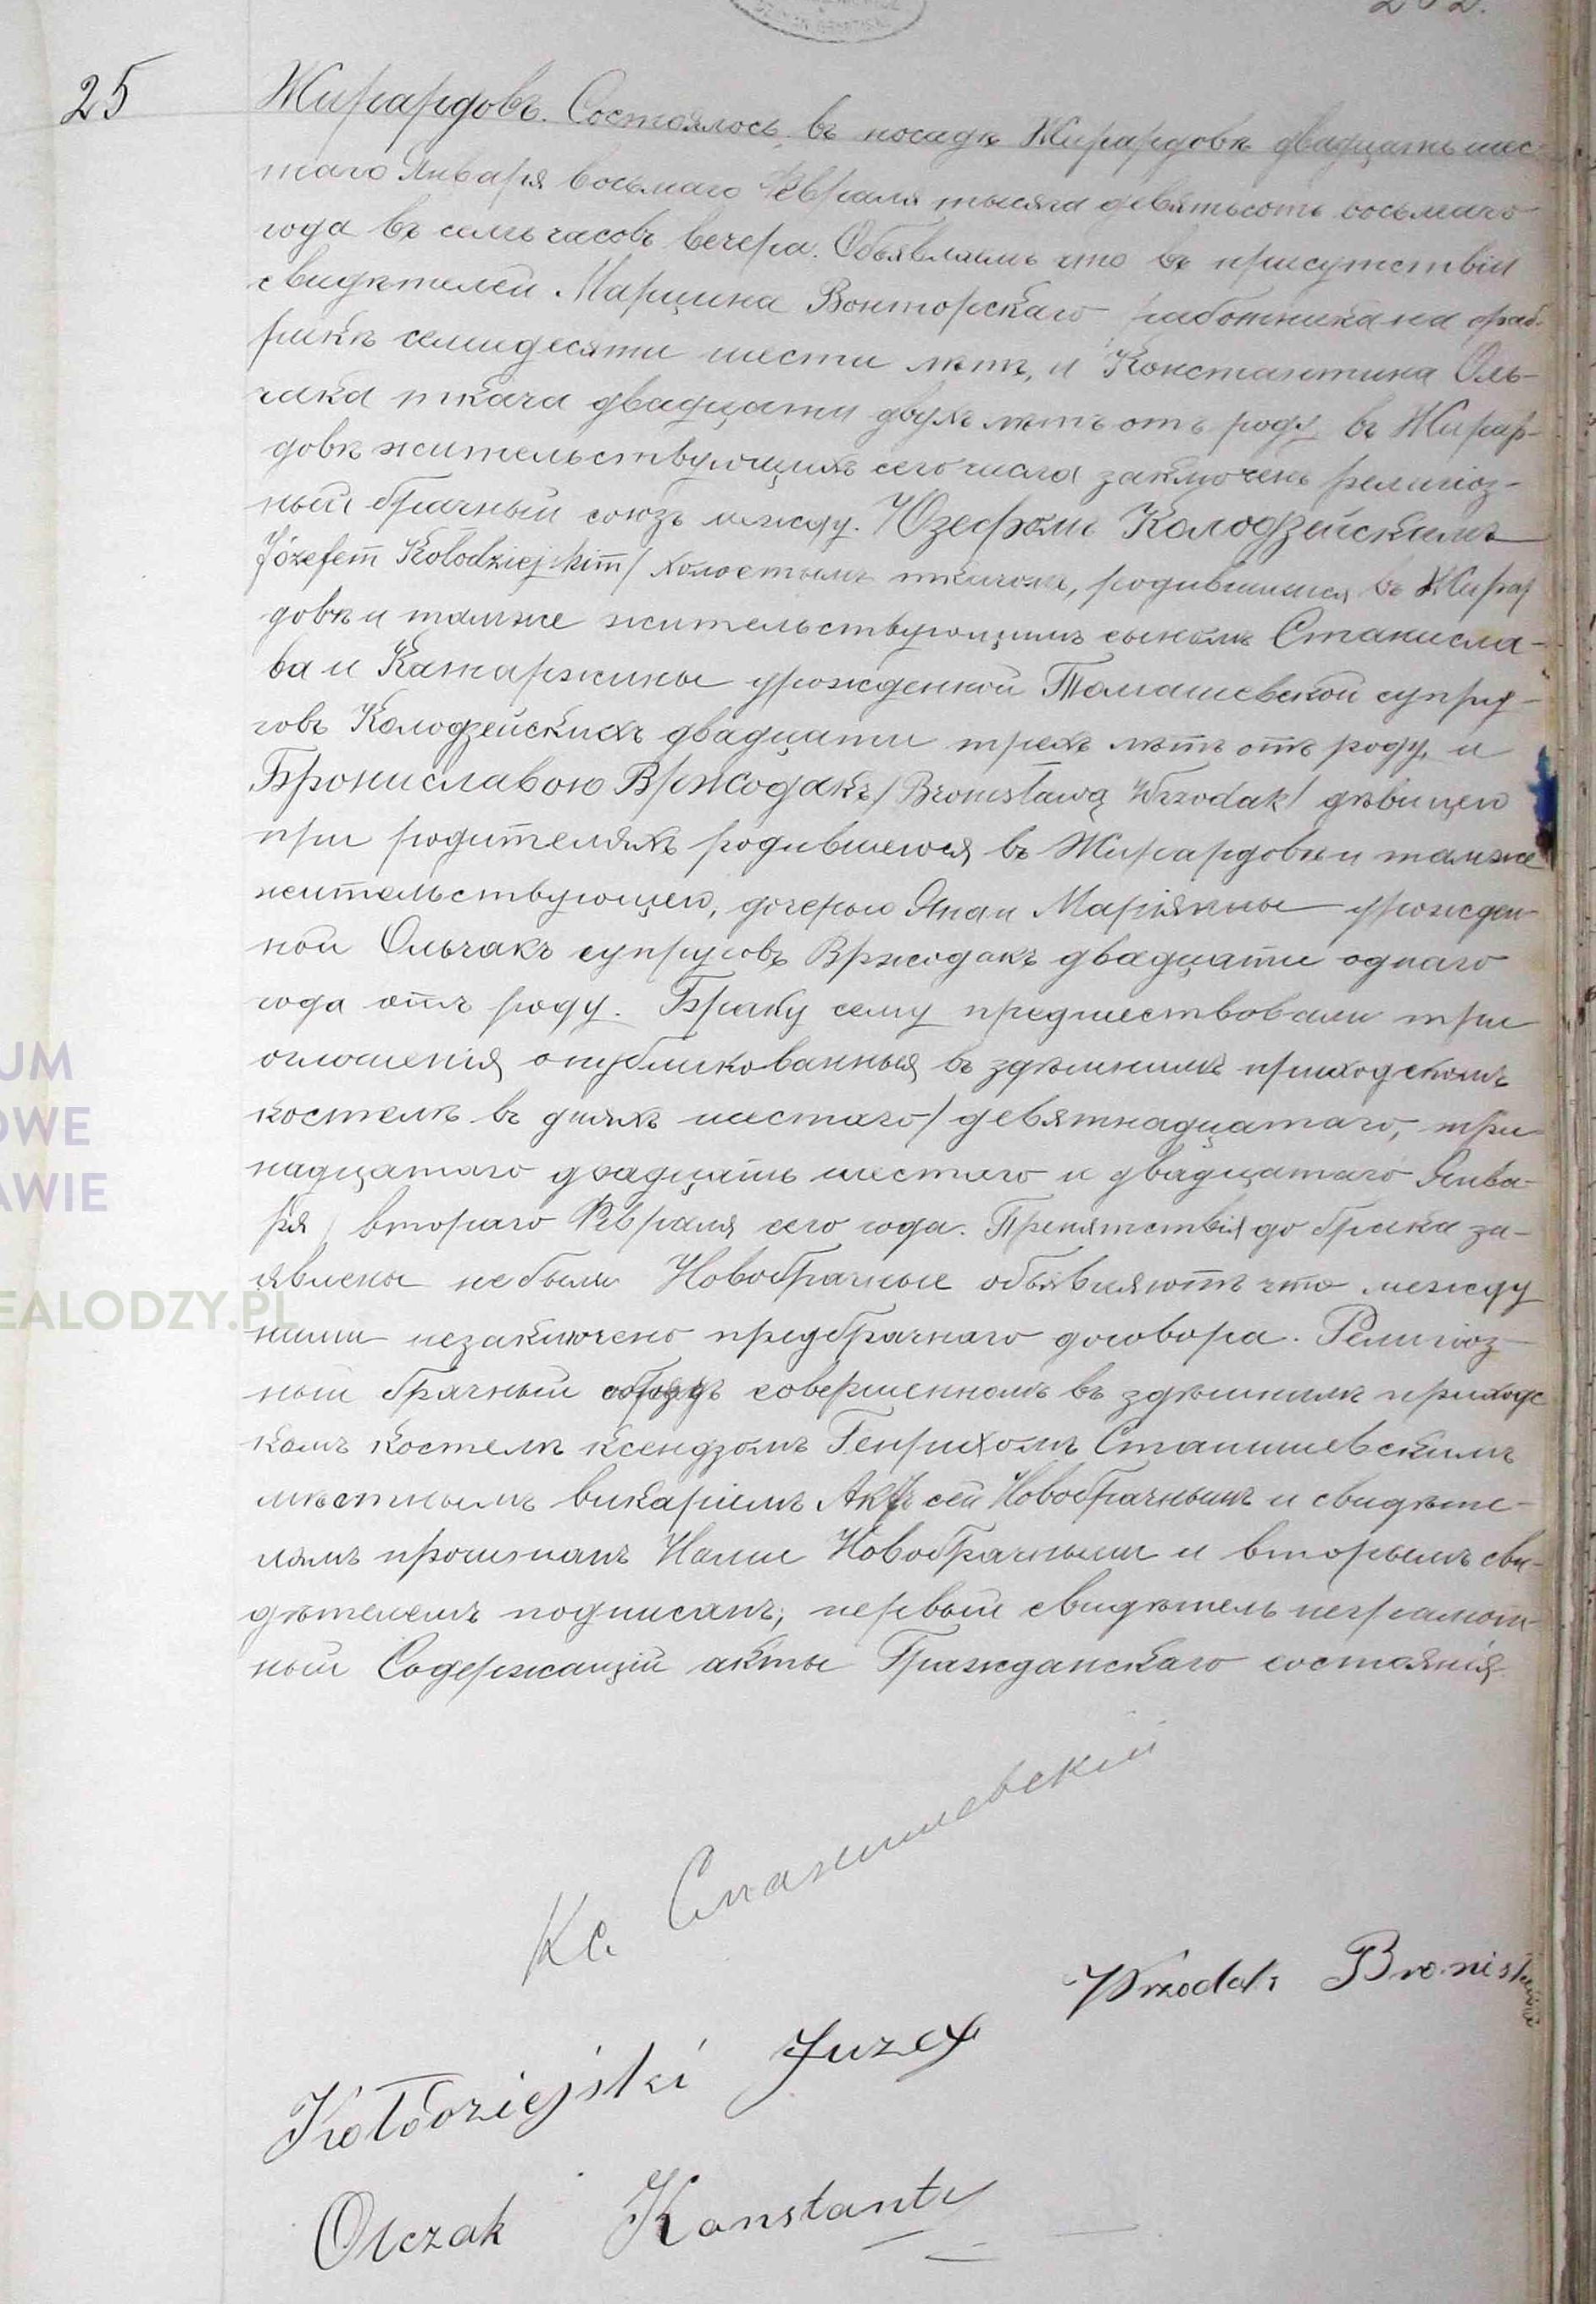 25
Жирардовъ. Состоялось въ посадѣ Жирардовѣ двадцать шес-
таго Января восьмаго Февраля тысяча девятьсотъ восьмаго
года въ семь часовъ вечера. Объявляемъ что въ присутствіи
свидѣтелей Марцина Вонторскаго работника на фаб-
рикѣ семидесяти шести лѣтъ, и Константина Оль-
чака ткача двадцати двухъ лѣтъ отъ роду въ Жирар-
довѣ жительствующихъ сего числа заключенъ религіоз-
ный брачный союзъ между. Юзефомъ Колодзейскимъ
Józefem Kołodziejskim/ холостымъ ткачомъ, родившимся въ Жирар
довѣ и тамже жительствующимъ сыномъ Станисла-
ва и Катаржины урожденной Томашевской супру-
говъ Колодзейскихъ двадцати трехъ лѣтъ отъ роду, и
Брониславою Вржодакъ/ Bronisławą Wrzodak/ дѣвицею
при родителяхъ родившеюся въ Жирардовѣ и тамже
жительствующею, дочерью Яна и Маріянны урожден-
ной Ольчакъ супруговъ Вржодакъ двадцати одного
года отъ роду. Браку сему предшествовали три
оглошенія опубликованныя въ здѣшнимъ приходскомъ
костелѣ въ дняхъ шестаго/ девятнадцатаго, три-
надцатаго двадцать шестаго и двадцатаго Янва-
ря / втораго Февраля сего года. Препятствія до брака за-
явлены небыли Новобрачные объявляютъ что между
ними незаключено предбрачнаго договора. Религіоз-
ный брачный обрядъ совершенномъ въ здѣшнимъ приходс
комъ костелѣ ксендзомъ Генрихомъ Станишевскимъ
мѣстнымъ викаріемъ Актъ сей Новобрачнымъ и свидѣте-
лямъ прочитанъ Нами Новобрачными и вторымъ сви-
дѣтелемъ подписанъ, первый свидѣтель неграмот-
ный Содержащій акты Гражданскаго состоянія.
Кс. Станишевскій
Wrzodak Bronisława
Kołodziejski Juzef
Olczak Konstanty
UM
OWE
AWIE
EALODZY.PL